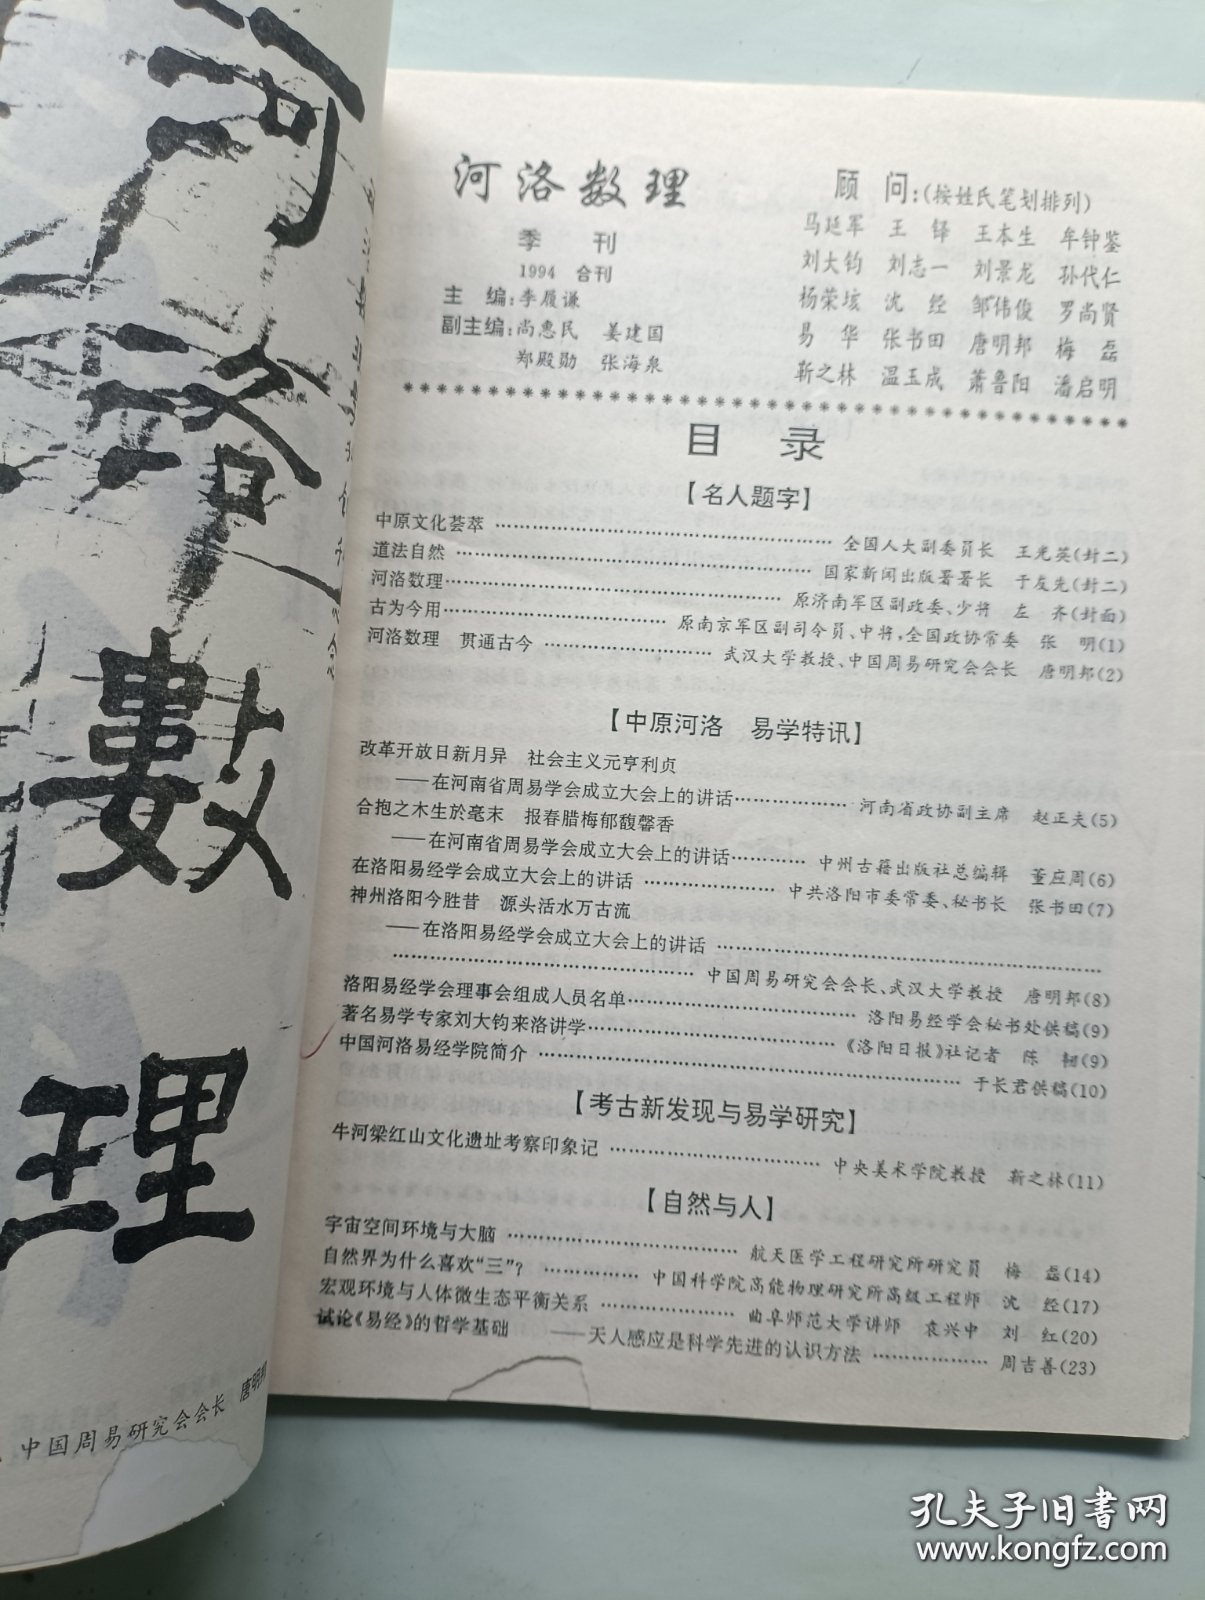 河洛數理
中国周易研究会会长 唐明邦
河洛数理
季 刊
1994 合刊
主 编:李履谦
副主编:尚惠民 姜建国
郑殿勋 张海泉
顾 问:(按姓氏笔划排列)
马延军 王 铎 王本生 牟钟鉴
刘大钧 刘志一 刘景龙 孙代仁
杨荣垓 沈 经 邹伟俊 罗尚贤
易 华 张书田 唐明邦 梅 磊
靳之林 温玉成 萧鲁阳 潘启明
目 录
【名人题字】
中原文化荟萃 …… 全国人大副委员长 王光英(封二)
道法自然 …… 国家新闻出版署署长 于友先(封二)
河洛数理 …… 原济南军区副政委、少将 左 齐(封面)
古为今用 …… 原南京军区副司令员、中将,全国政协常委 张 明(1)
河洛数理 贯通古今 …… 武汉大学教授、中国周易研究会会长 唐明邦(2)
【中原河洛 易学特讯】
改革开放日新月异 社会主义元亨利贞
——在河南省周易学会成立大会上的讲话 …… 河南省政协副主席 赵正夫(5)
合抱之木生於毫末 报春腊梅郁馥馨香
——在河南省周易学会成立大会上的讲话 …… 中州古籍出版社总编辑 董应周(6)
在洛阳易经学会成立大会上的讲话 …… 中共洛阳市委常委、秘书长 张书田(7)
神州洛阳今胜昔 源头活水万古流
——在洛阳易经学会成立大会上的讲话 ……
…… 中国周易研究会会长、武汉大学教授 唐明邦(8)
洛阳易经学会理事会组成人员名单 …… 洛阳易经学会秘书处供稿(9)
著名易学专家刘大钧来洛讲学 …… 《洛阳日报》社记者 陈 韧(9)
中国河洛易经学院简介 …… 于长君供稿(10)
【考古新发现与易学研究】
牛河梁红山文化遗址考察印象记 …… 中央美术学院教授 靳之林(11)
【自然与人】
宇宙空间环境与大脑 …… 航天医学工程研究所研究员 梅 磊(14)
自然界为什么喜欢“三”? …… 中国科学院高能物理研究所高级工程师 沈 经(17)
宏观环境与人体微生态平衡关系 …… 曲阜师范大学讲师 袁兴中 刘 红(20)
试论《易经》的哲学基础 ——天人感应是科学先进的认识方法 …… 周吉善(23)
孔夫子旧书网
www.kongfz.com